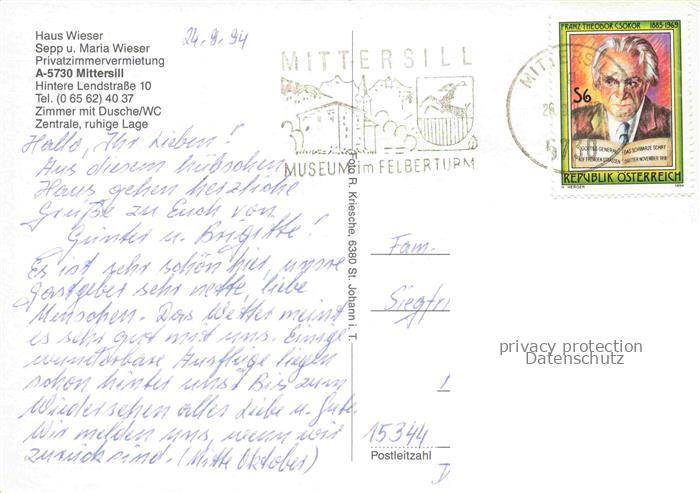 Haus Wieser
Sepp u. Maria Wieser
Privatzimmervermietung
A-5730 Mittersill
Hintere Lendstraße 10
Tel. (0 65 62) 40 37
Zimmer mit Dusche/WC
Zentrale, ruhige Lage
24.9.94
Hallo, Ihr Lieben!
Aus diesem hübschen
Haus gehen herzliche
Grüße zu Euch von
Günter u. Brigitte!
Es ist sehr schön hier, unsre
Gastgeber sehr nette, liebe
Menschen. Das Wetter meint
es sehr gut mit uns. Einige
wunderbare Ausflüge liegen
schon hinter uns! Bis zum
Wiedersehen alles Liebe u. Gute.
Wir melden uns, wenn wir
zurück sind. (Mitte Oktober)
MITTERSILL
MUSEUM im FELBERTURM
Foto R. Kriesche, 6380 St. Johann i. T.
MITTERS
5730
FRANZ THEODOR CSOKOR 1885-1969
S6
3. NOVEMBER 1918
REPUBLIK ÖSTERREICH
1994
Fam.
Siegfri
15344
Postleitzahl
privacy protection
Datenschutz